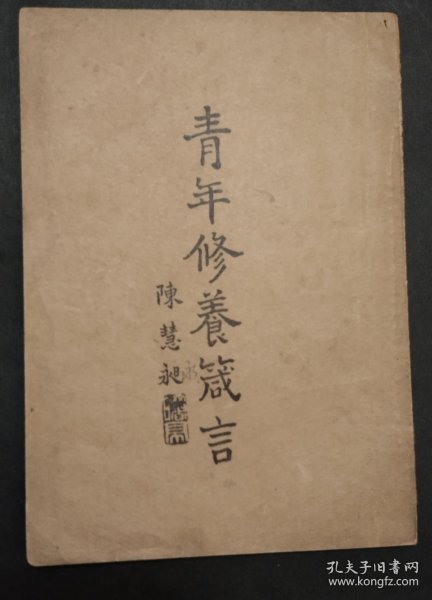 青年修養箴言
陳慧昶
孔夫子旧书网
www.kongfz.com